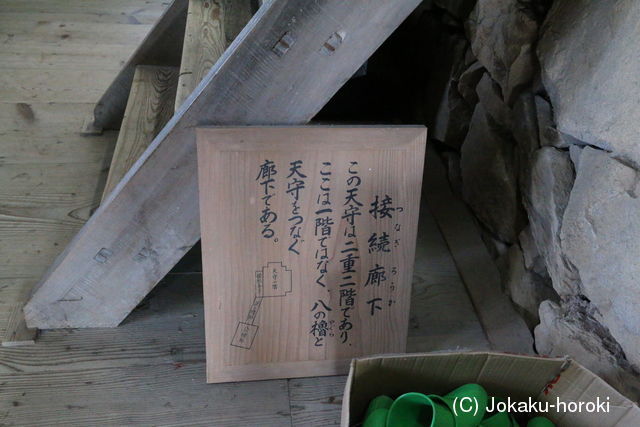 接続廊下
つなぎろうか
この天守は二重二階であり、
ここは一階ではなく、八の櫓と
やぐら
天守をつなぐ
廊下である。
(C) Jokaku-horoki